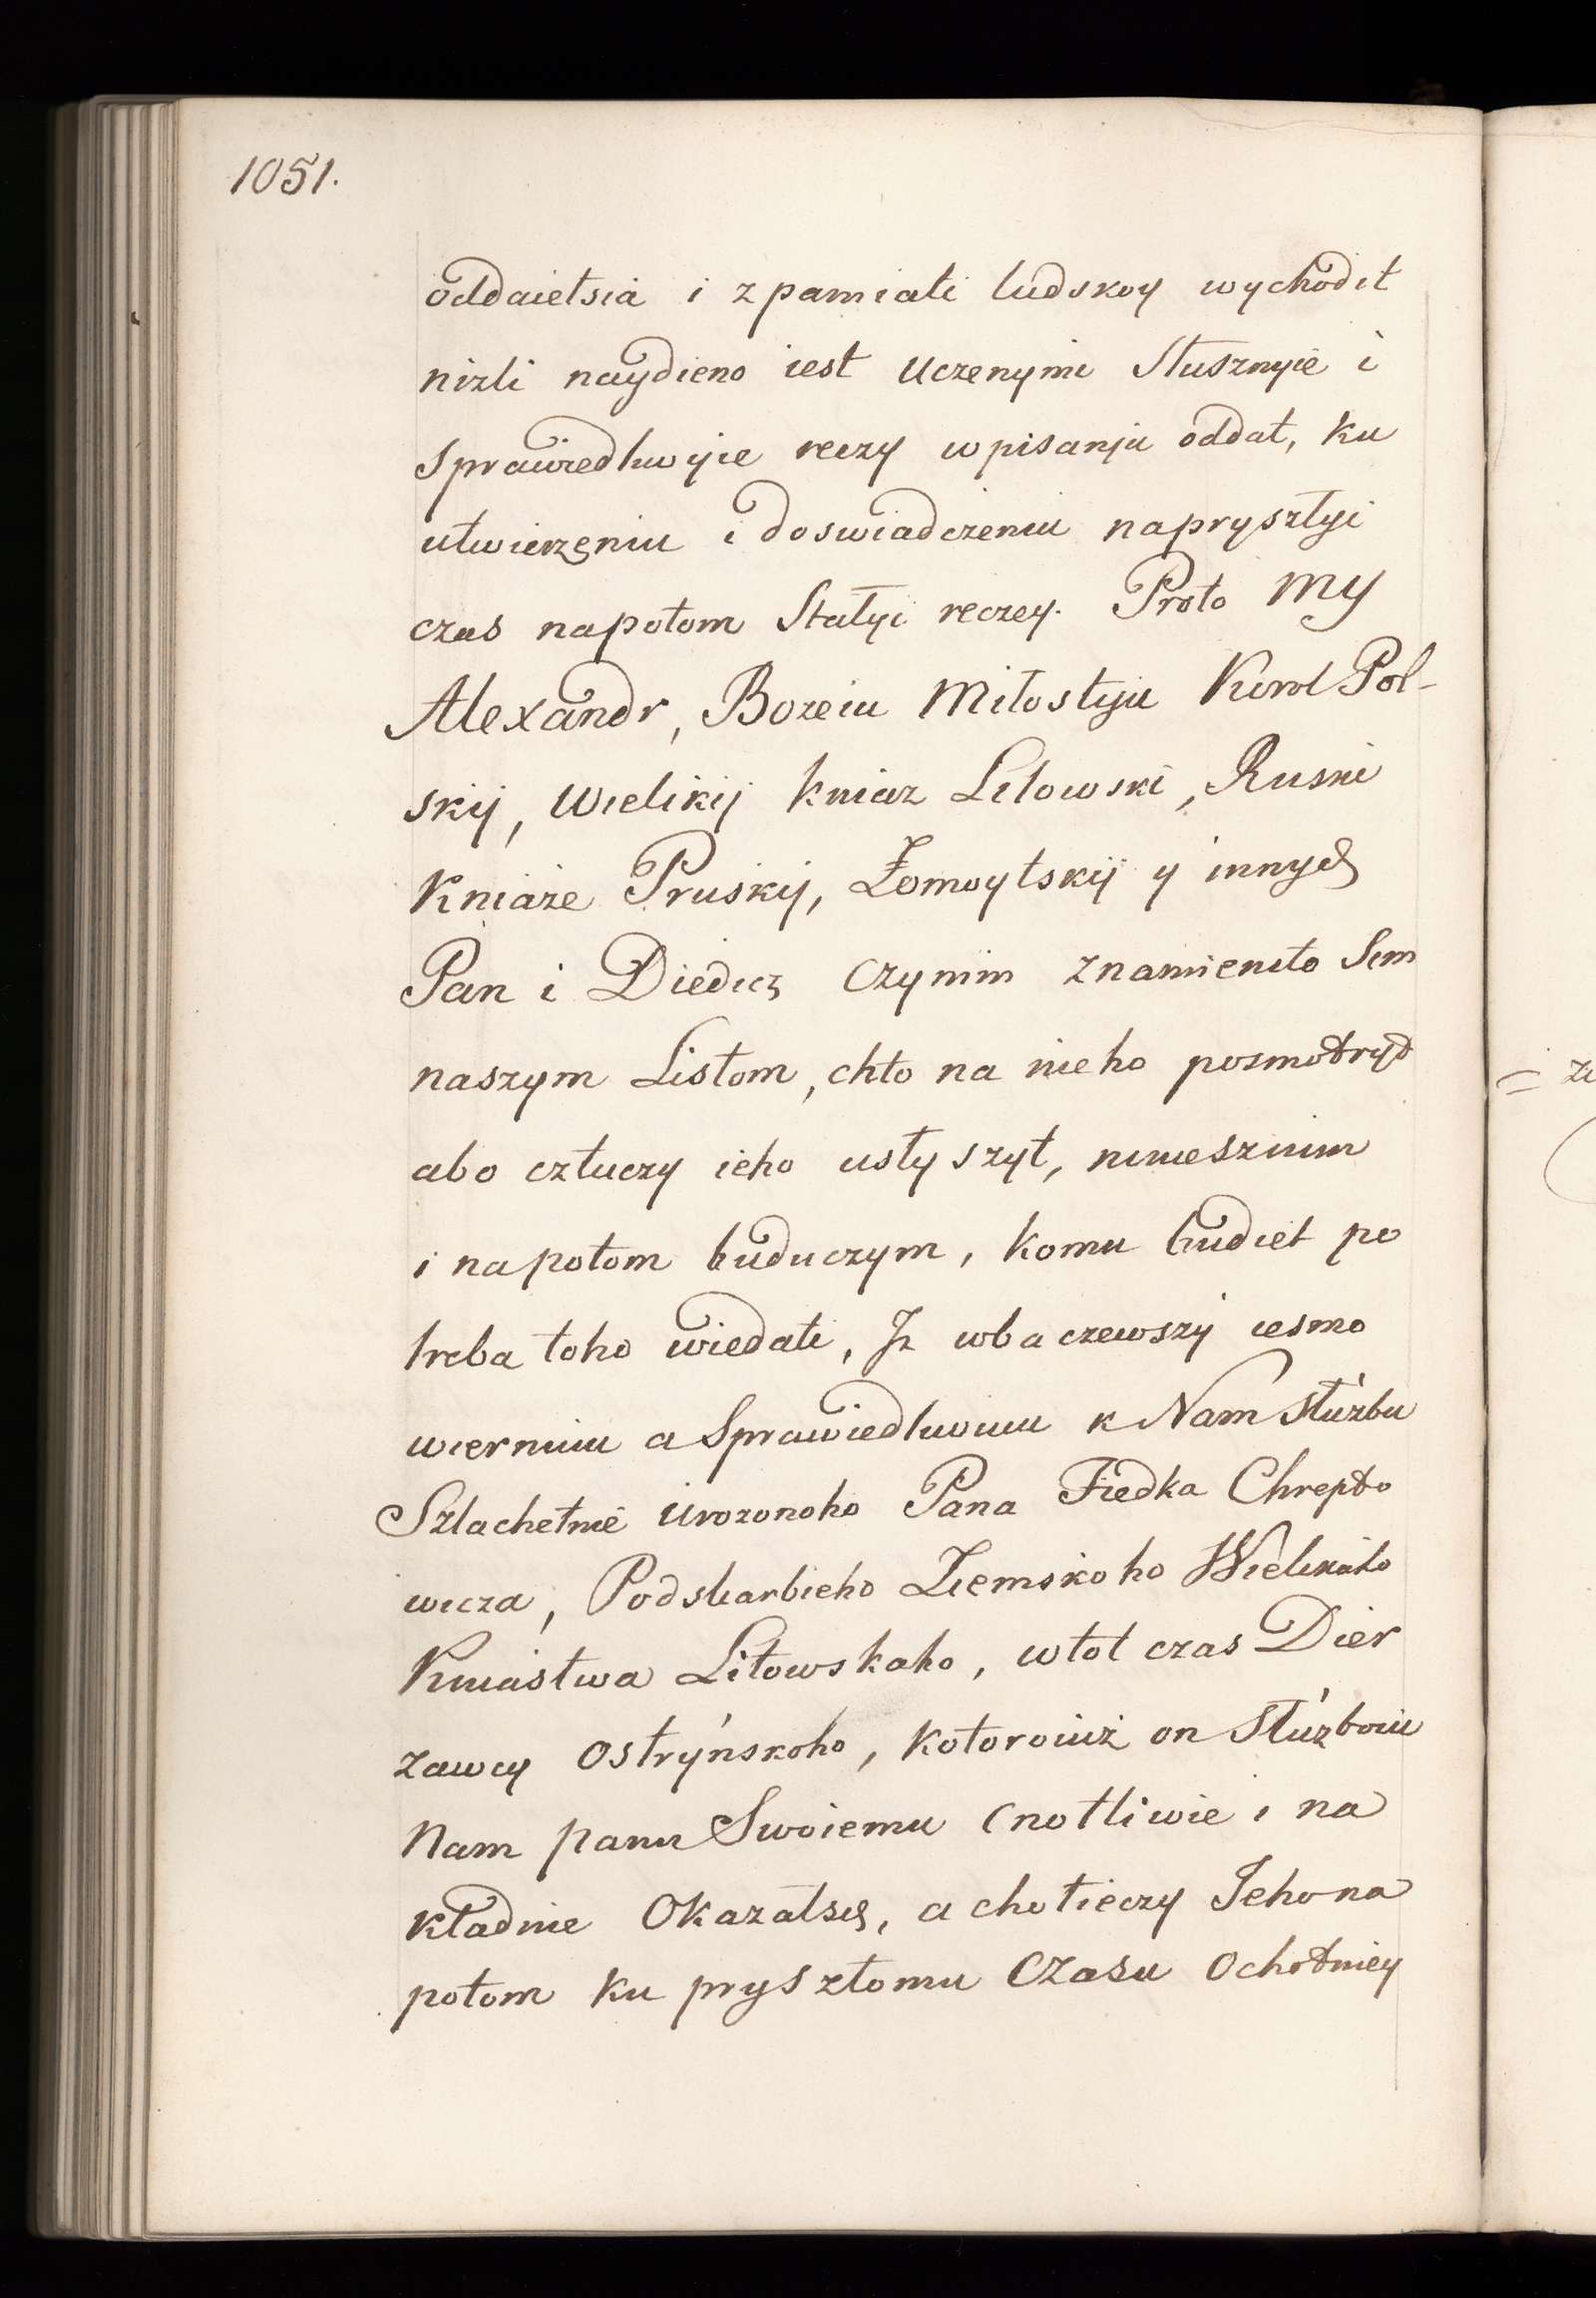 1051.
oddaietsia i z pamiati ludskoy wychodit
nizli naydieno iest Uczenymi Słusznyie i
sprawiedliwyie reczy w pisanju oddat, ku
utwierzeniu i doswiadczeniu napryszłyi
czas napotom Stałyi reczey. Proto My
Alexandr, Bozeiu Miłostyju Korol Pol-
skij, Wielikij kniaz Litowski, Ruski
Kniaże Pruskij, Żomoytskij y innych
Pan i Diedicz Czynim znamenito Sim
naszym Listom, chto na nieho posmotryt
abo cztuczy ieho usłyszyt, nineszniem
i napotom buduczym, komu budiet po
treba toho wiedati, Iz wbaczewszy iesmo
wierniu a Sprawiedliwuiu k Nam służbu
Szlachetnie Urozonoho Pana Fiedka Chrepto
wicza, Podskarbieho Ziemskoho Wielikaho
Kniastwa Litowskaho, wtot czas Dier
zawcy Ostryńskoho, kotoroiuż on Służboiu
Nam panu Swoiemu Cnotliwie i na
kładnie Okazałsię, a chotieczy Jeho na
potom ku pryszłomu Czasu Ochotniey
= Zi